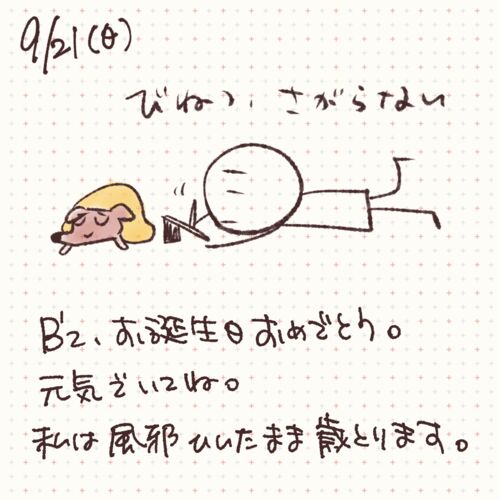 9/21(日)
びねつ、さがらない
B'z、お誕生日おめでとう。
元気でいてね。
私は風邪ひいたまま歳とります。